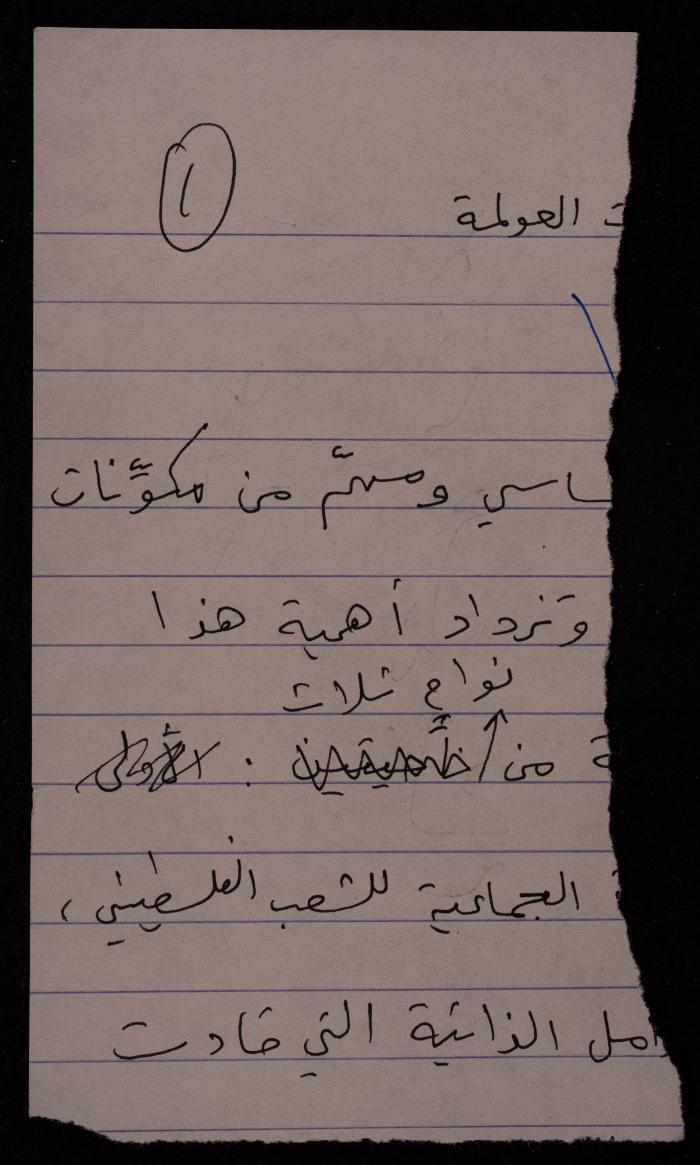 ت العولمة
١
ـاسي ومهمّ من مكوِّنات
وتزداد أهمية هذا
نواحٍ ثلاث
ة من :
ة الجماعية للشعب الفلسطيني ،
وامل الذاتية التي قادت